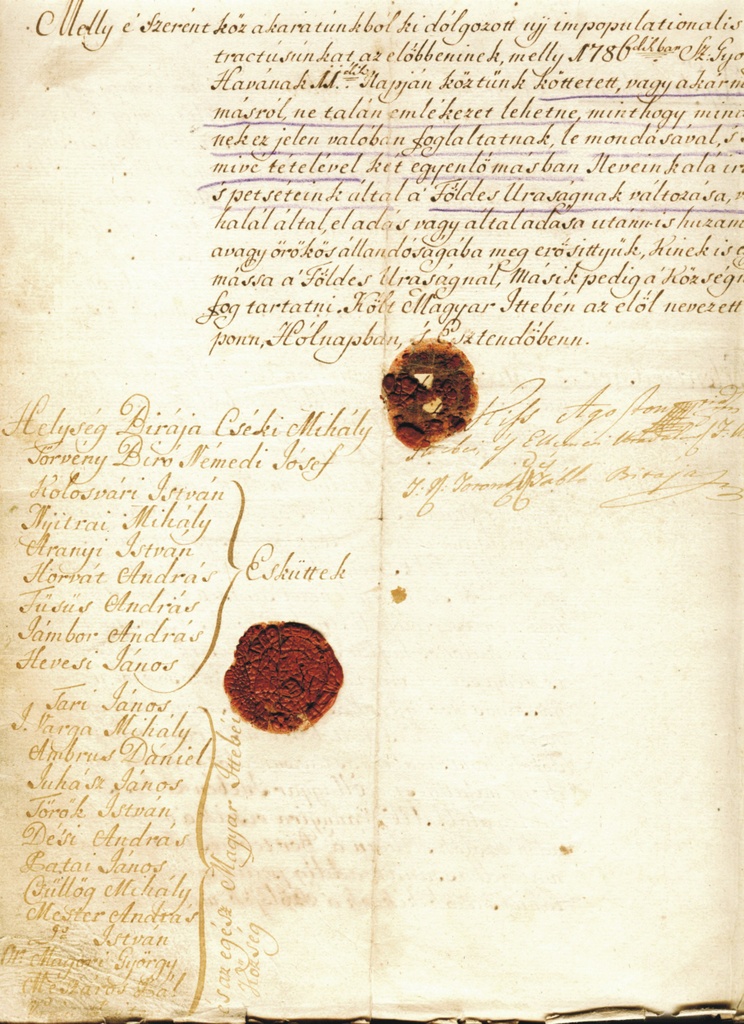 Melly é Szerént köz akaratúnkból ki dólgozott ujj impopulationalis
tractúsúnkat, az előbbeninek, melly 1786dik ban Sz. Gyo
Havának 11dik Napján köztünk köttetett, vagy akárm
másról, ne talán emlékezet lehetne, minthogy mind
nek ez jelen valóban foglaltatnak, le mondásával, s
mivé tételével két egyenlő másban Neveink alá ir
s petséteink által a' Földes Uraságnak változása, v
halál által, el adás vagy által adása utánn is huzam
avagy örökös állandóságába meg erősittyük, Kinek is e
mássa a' Földes Uraságnál, Másik pedig a' Községn
fog tartatni. Költ Magyar Ittebén az elől nevezett
ponn, Hólnapban, és Esztendőbenn.
Kiss Agoston
Bíraja
Helység Birája Cséki Mihály
Törvény Biró Némedi Jósef
Kolosvári István
Nyitrai Mihály
Aranyi István
Horvát András
Füsüs András
Jámbor András
Hevesi János
Esküttek
Tari János
J. Varga Mihály
Ambrus Dániel
Juhász János
Török István
Dési András
Patai János
Csüllőg Mihály
Mester András
István
Magori György
Mészáros Pál
s az egész Magyar Ittebéi
Község